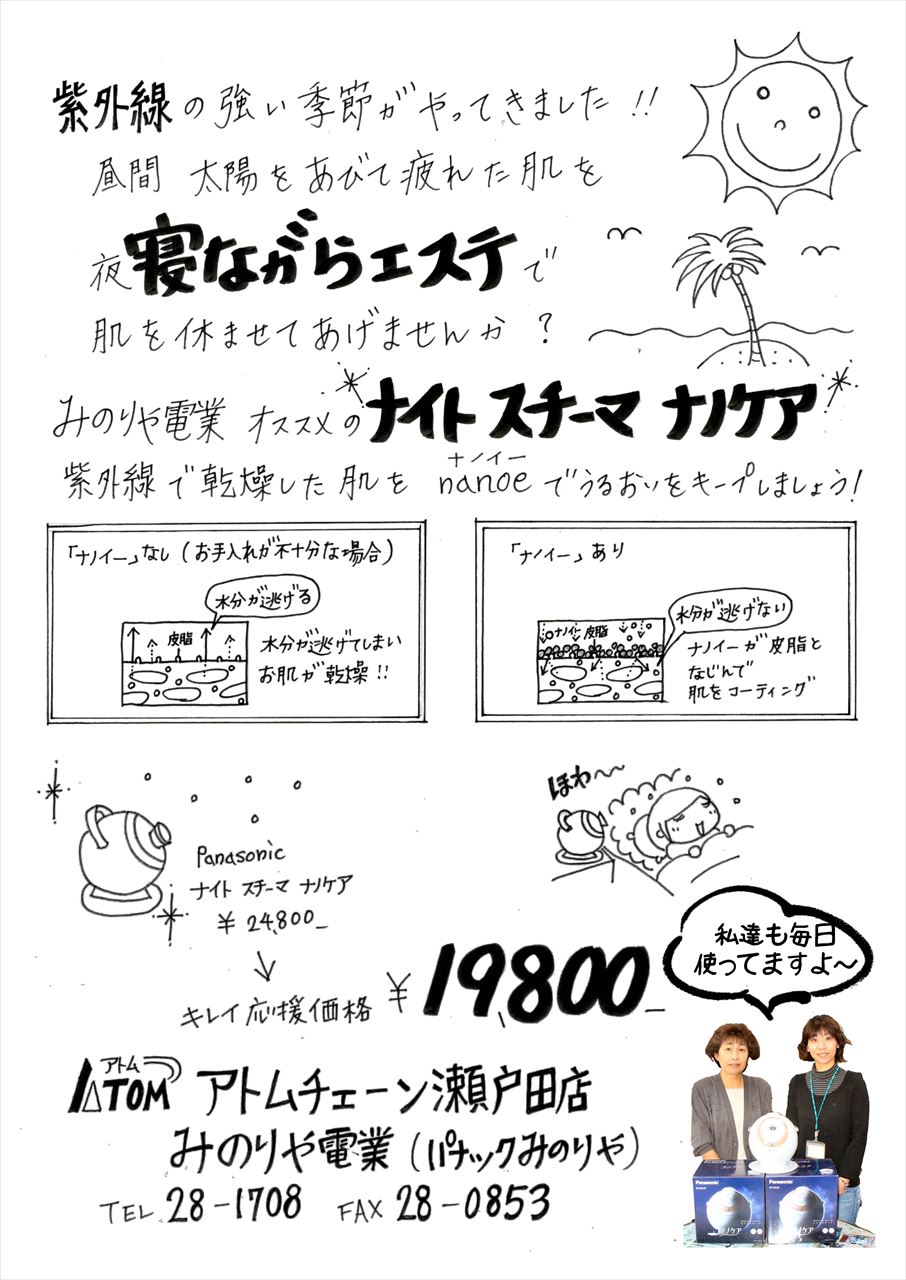 紫外線の強い季節がやってきました!!
昼間 太陽をあびて疲れた肌を
夜寝ながらエステで
肌を休ませてあげませんか?
みのりや電業 オススメのナイト スチーマ ナノケア
ナノイー
紫外線で乾燥した肌をnanoeでうるおいをキープしましょう!
「ナノイー」なし(お手入れが不十分な場合)
水分が逃げる
皮脂
水分が逃げてしまい
お肌が乾燥!!
「ナノイー」あり
水分が逃げない
ナノイー 皮脂
ナノイーが皮脂と
なじんで
肌をコーティング
ほわ〜〜
Panasonic
ナイト スチーマ ナノケア
¥24,800-
キレイ応援価格 ¥19,800-
私達も毎日
使ってますよ〜
アトム
ATOM アトムチェーン瀬戸田店
みのりや電業(パナックみのりや)
TEL 28-1708 FAX 28-0853
Panasonic
Panasonic
ナノケア
ナノケア